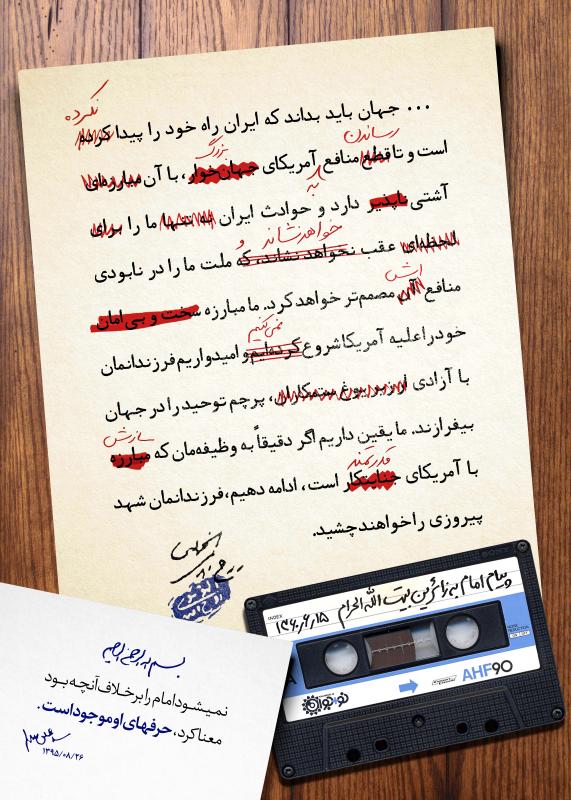 نکرده
... جهان باید بداند که ایران راه خود را پیدا کرده
رساندن
است و تا قطع منافع آمریکای جهان‌خوار، با آن مبارزه‌ای
بزرگ
آشتی ناپذیر دارد و حوادث ایران نه تنها ما را برای
به
خواهد نشاند و
لحظه‌ای عقب نخواهد نشاند، که ملت ما را در نابودی
اش
منافع آن مصمم‌تر خواهد کرد. ما مبارزه سخت و بی امان
نمی‌کنیم
خود را علیه آمریکا شروع کرده‌ایم و امیدواریم فرزندانمان
با آزادی از زیر یوغ ستمکاران، پرچم توحید را در جهان
بیفرازند. ما یقین داریم اگر دقیقاً به وظیفه‌مان که مبارزه
سازش
قدرتمند
با آمریکای جنایتکار است، ادامه دهیم، فرزندانمان شهد
پیروزی را خواهند چشید.
پیام امام به زائرین بیت الله الحرام
INDEX
۱۳۶۰/۶/۱۵
AHF90
نمیشود امام را برخلاف آنچه بود
معنا کرد، حرفهای او موجود است.
۱۳۹۵/۰۸/۲۶